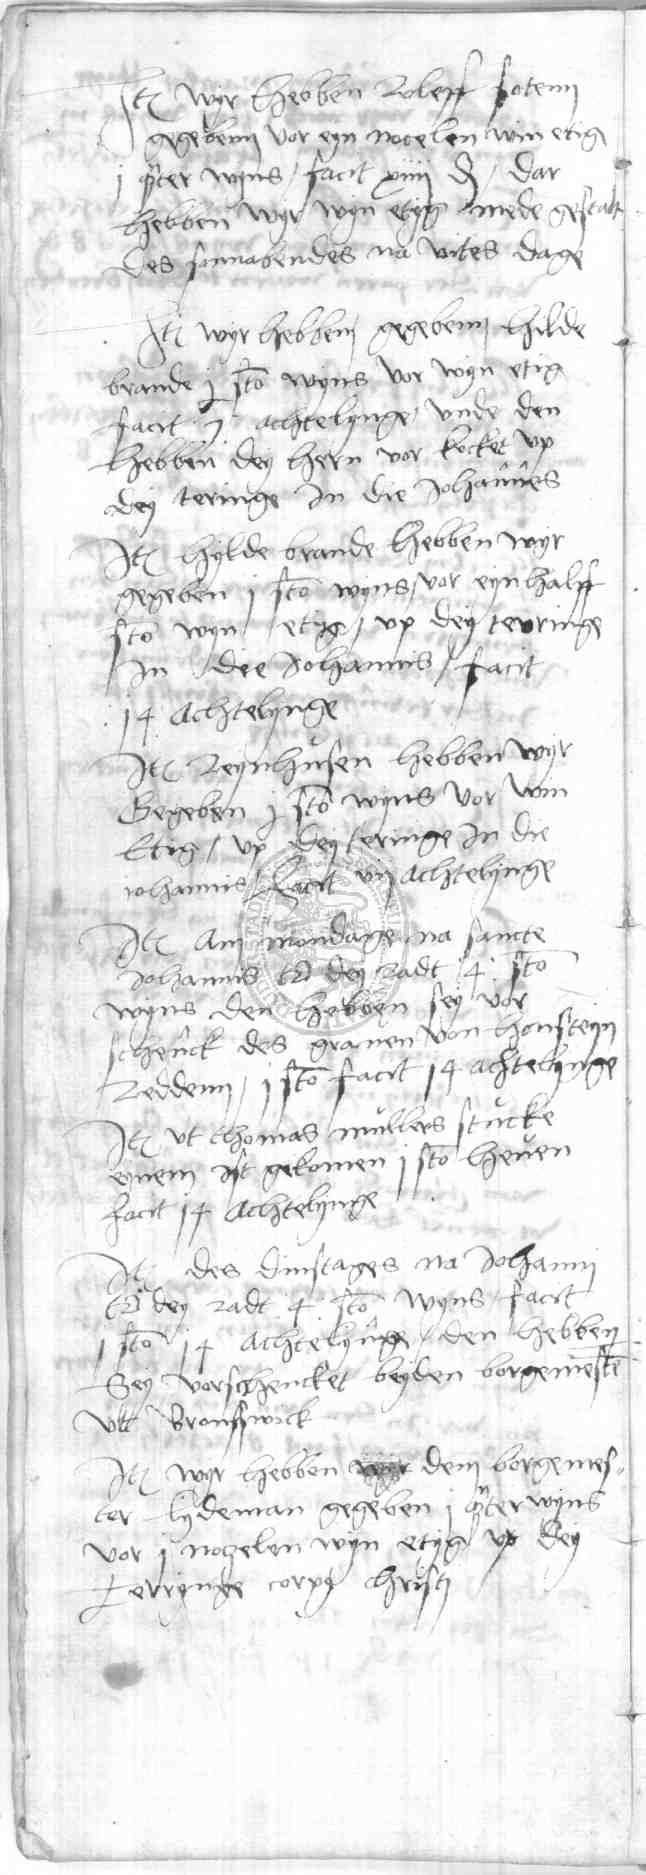 Itē wyr hebben Roleff sotem
gegeben vor eyn nocelen win etig
j q̄ter wyns / facit xiiij ₰ / dar
hebben wyr wyn etyg mede gestalt
des sonnabendes na vites dage
Itē wyr hebben gegeben hilde
brande j sto wyns vor wyn etig
facit achtelynge / vnde den
hebben dey hern vor kocket vp
dey teringe In die Johannes
Itē hylde brande hebben wyr
gegeben j sto wyns / vor eyn halff
sto wyn etig / vp dey terringe
In die Johannis / facit
14 Achtelynge
Itē Reynhusen hebben wyr
Gegeben j sto wyns vor win
Etig / vp dey teringe In die
iohannis / facit vij achtelynge
Itē Am mondage na sancte
Johannis dey radt 4 sto
wyns den hebben sey vor
schenck des grauen von honsteyn
Reddenn / j sto facit 14 achtelynge
Itē vt thomas mullers stucke
eynem ist gekomen j sto heuen
facit 14 Achtelynge
Itē des dinstages na Johanni
dey radt 4 sto wyns / facit
1 sto 14 Achtelynge / den hebben
Sey vorschencket beyden borgemeste
vtt Bronsswick
Itē wyr hebben dem borgemes
ter lydeman gegeben j q̄ter wyns
vor j nozelen wyn etyg vp dey
terrynge corpg christi